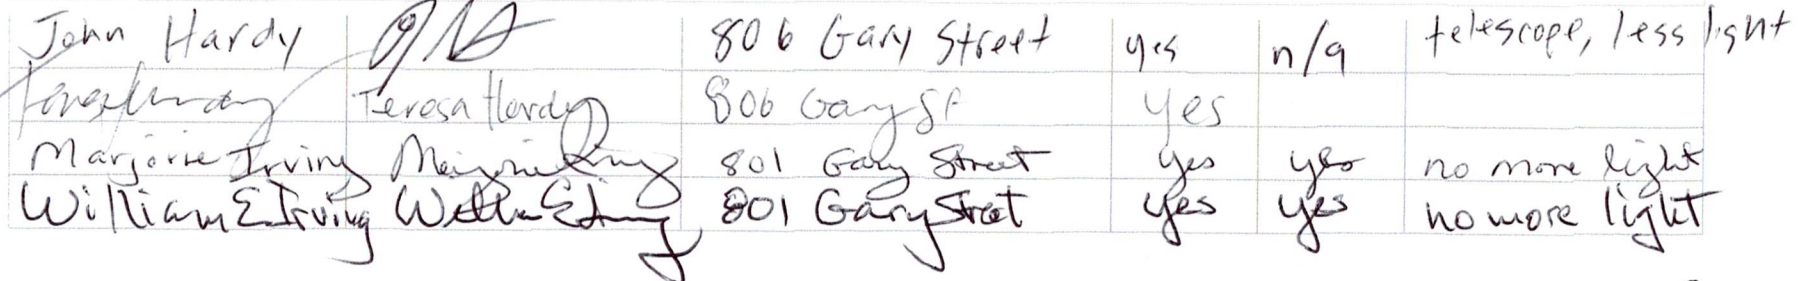 John Hardy 806 Gary Street yes n/a telescope, less light
Teresa Hardy 806 Gary St yes
Marjorie Irving Marjorie Irving 801 Gary Street yes yes no more light
William E Irving William E Irving 801 Gary Street yes yes no more light